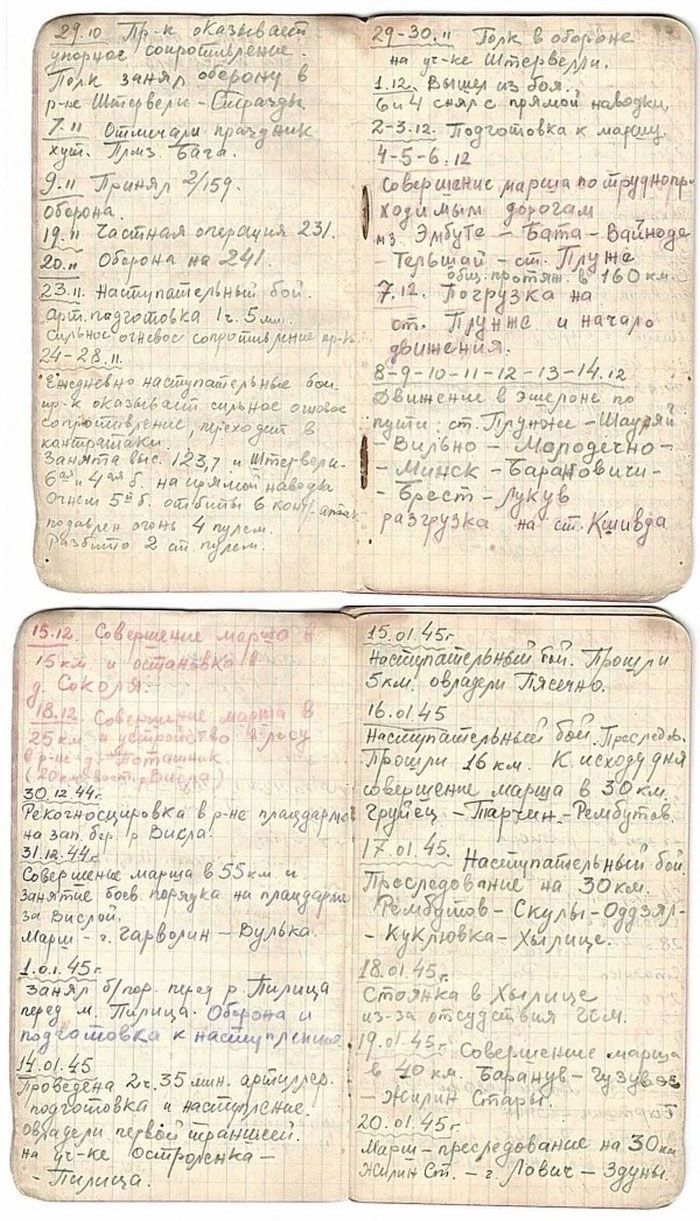 29.10 Пр-к оказывает
упорное сопротивление.
Полк занял оборону в
р-не Штервели - Стразды
7.11 Отмечали праздник
хут. Плмз. Бага.
9.11 Принял 2/159.
оборона.
19.11 Частная операция 231.
20.11 Оборона на 241.
23.11. Наступательный бой.
арт. подготовка 1 ч. 5 мин.
Сильное огневое сопротивление пр-ка
24-28.11.
Ежедневно наступательные бои.
пр-к оказывает сильное огневое
сопротивление, переходит в
контратаки.
Занята выс. 123,7 и Штервели.
6ая и 4ая б. на прямой наводке
Огнем 5й б. отбиты 6 контратак
подавлен огонь 4 пулем.
Разбито 2 ст. пулем.
29-30.11 Полк в обороне
на уч-ке Штервели.
1.12. Вышел из боя.
6 и 4 снял с прямой наводки
2-3.12. Подготовка к маршу.
4-5-6.12
Совершение марша по труднопро-
ходимым дорогам
мз. Эмбуте - Бата - Вайноде
- Тельшай - ст. Плуже
общ. протяж. в 160 км.
7.12. Погрузка на
ст. Плунже и начало
движения.
8-9-10-11-12-13-14.12
Движение в эшелоне по
пути: ст. Плунжи - Шауляй
- Вильно - Молодечно -
- Минск - Барановичи -
- Брест - Лукув
разгрузка на ст. Кшивда
15.12. Совершение марша в
15 км и остановка в
д. Соколя.
18.12. Совершение марша в
25 км и устройство в лесу
в р-не д. Поташник
(20 км вост. р. Висла)
30.12.44г.
Рекогносцировка в р-не плацдарма
на зап. бер. р. Висла.
31.12.44г.
Совершение марша в 55 км и
занятие боев. порядка на плацдарме
за Вислой.
Марш - г. Гарволин - Вулька.
1.01.45г.
Занял б/пор. перед р. Пилица
перед м. Пилица. Оборона и
подготовка к наступлению
14.01.45
Проведена 2ч. 35 мин. артиллер.
подготовка и наступление.
Овладели первой траншеей.
на уч-ке Остроленка -
- Пилица.
15.01.45г
Наступательный бой. Прошли
5 км. овладели Пясечно.
16.01.45
Наступательный бой. Преследов.
Прошли 16 км. К исходу дня
совершение марша в 30 км.
Груйец - Тарчин - Рембутов.
17.01.45. Наступательный бой.
Преследование на 30 км.
Рембутов - Скулы - Оддзял -
- Куклювка - Хылице.
18.01.45г.
Стоянка в Хылице
из-за отсудствия ГСМ.
19.01.45г. Совершение марша
в 40 км. Баранув - Гузув
- Жилин Стары.
20.01.45г.
Марш - преследование на 30 км
Жилин Ст. - г. Лович - Здуны.